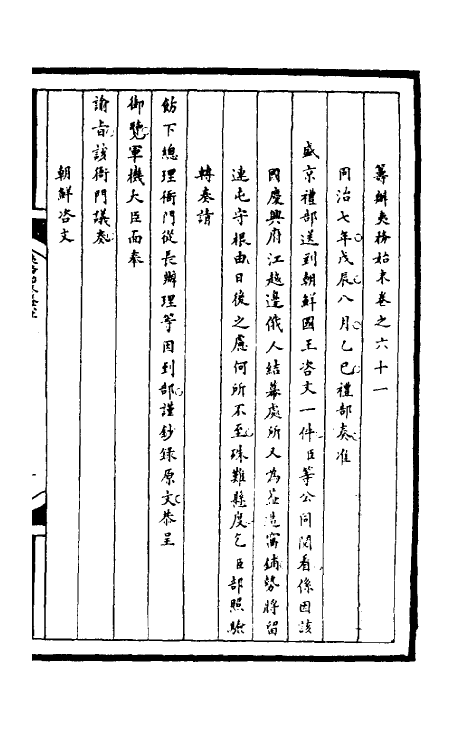 籌辦夷務始末卷之六十一
同治七年戊辰八月乙巳禮部奏准
盛京禮部送到朝鮮國王咨文一件臣等公同閱看係因該
國慶興府江越邊俄人結幕處所又為蓋造窩鋪勢將留
連屯守根由日後之慮何所不至殊難懸度乞臣部照驗
轉奏請
飭下總理衙門從長辦理等因到部謹鈔錄原文恭呈
御覽軍機大臣面奉
諭旨該衙門議奏
朝鮮咨文